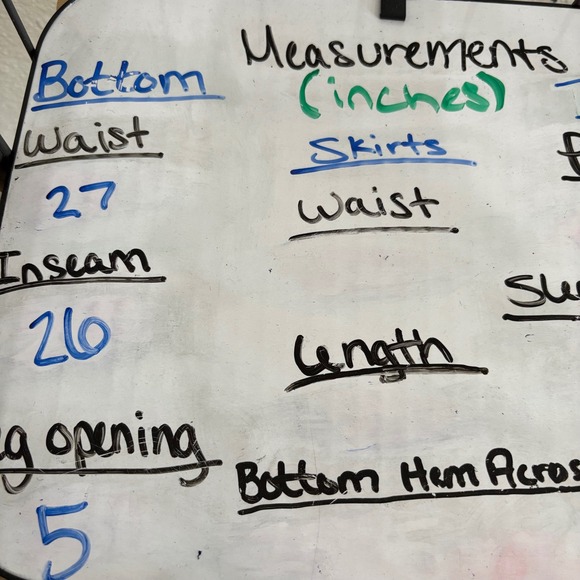 Measurements
(inches)
Bottom
Waist
27
Inseam
26
eg opening
5
Skirts
Waist
Length
Bottom Hem Acros